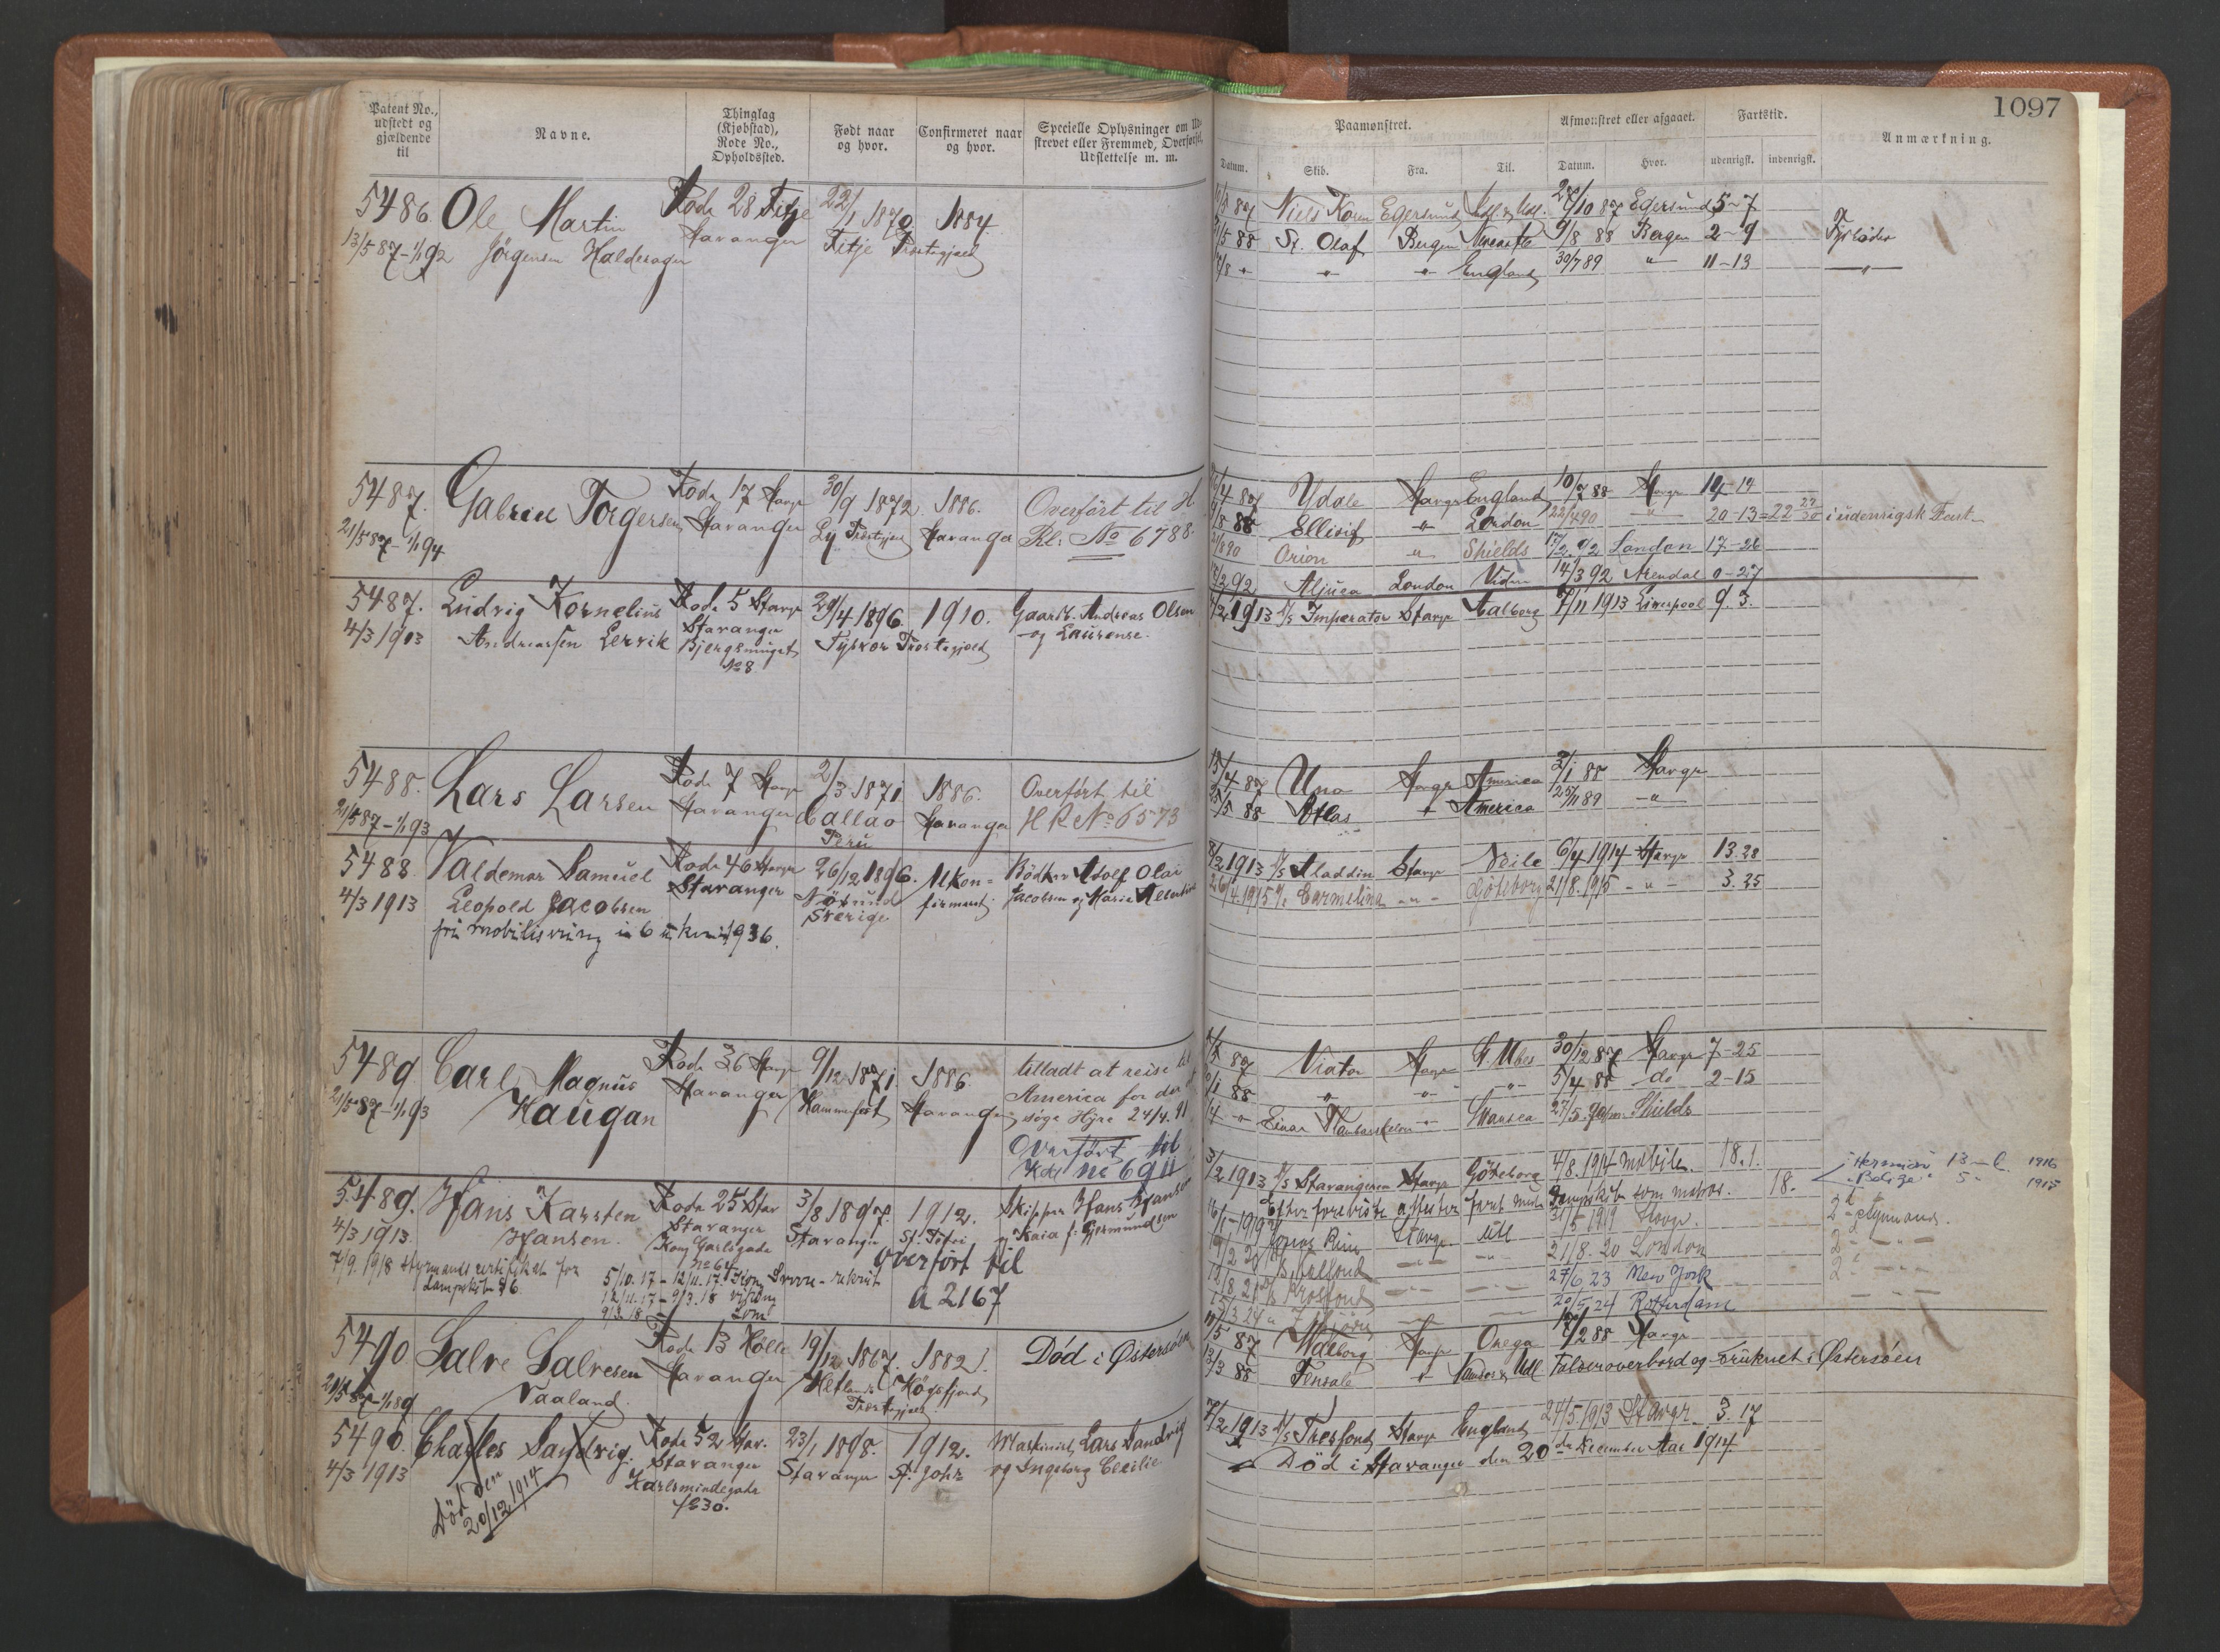 1097
Patent No., udstedt og gjældende til
Navne.
Thinglag (Kjøbstad), Rode No., Opholdssted.
Født naar og hvor.
Confirmeret naar og hvor.
Specielle Oplysninger om Ud-
strevet eller Fremmed, Overførsel,
Udslettelse m. m.
Paamønstret.
Afmønstret eller afgaaet.
Fartstid.
Anmærkning.
Datum. Skib. Fra. Til. Datum. Hvor. udenrigst. indenrigst.
5486 Ole Martin Rode 28 Fitje 22/1 1870 1884
13/5 87 - 1/1 92 Jörgensen Haldesager Stavanger Fitje Prestegjæld
87 Niels Koren Egersund 10 87 Egersund 5-7
88 St. Olaf Bergen Newcastle 9/8 88 Bergen 2-9 Fyrböder
" " " England 30/7 89 " 11-13 "
5487. Gabriel Torgersen Rode 17 Stavgr 30/9 1872 1886. Overført til H
21/5 87 - 1/1 94 Stavanger Ly Prestegjæld Stavanger Rl: No 6788.
4 87 Ydale Stavgr England 10/7 88 Stavgr 14-14
88 Ellisif " London 22/4 90 " 20-13 = 22 i udenrigsk Fart
90 Orion " Shields 17/2 92 London 17-26
2 92 Aljuca London Viden 14/3 92 Arendal 0-27
5487. Ludvig Kornelius Rode 5 Stavgr 29/4 1896. 1910. Gaardbr. Andreas Olsen
4/3 1913 Andreassen Lervik Stavanger Fisker Prestegjæld og Laurense.
Bjergsmuget
No 8
2 1913 D/S Imperator Stavgr Aalborg 7/11 1913 Liverpool 9. 3.
5488. Lars Larsen Rode 7 Stavgr 2/3 1871 1886. Overført til
21/5 87 - 1/1 93 Stavanger Callao Stavanger H R No 6573
Peru
4 87 Una Stavgr America 2/1 88 Stavgr
5 88 Atlas " America 25/11 89 "
5488 Valdemar Samuel Rode 46 Stavgr 26/12 1896. Ukon=
4/3 1913 Leopold Jacobsen Stavanger firmeret Bödker Adolf Olai
Sverige Jacobsen og Marie Albertine
fri mobilisering i 6 1936.
2 1913 D/S Aladdin Stavgr Veile 6/4 1914 Stavgr 13.28
26/4 1915 D/S Carmelina " Göteborg 21/8. 1915 " 3. 25
5489 Carl Magnus Rode 36 Stavgr 9/12 1871. 1886. tilladt at reise til
21/5 87 - 1/1 93 Haugan Stavanger Hammerfest Stavanger America for der at
søge Hyre 24/4. 91
Overført til
No 6911
87 Viator Stavgr St. Ubes 30/12 87 Stavgr 7-25
1 88 " " " 5/4 88 do 2-15
" Einar Tambarskelver " Swansea 27/5. 90 Shields
5489. Hans Karsten Rode 25 Stav 3/8 1897. 1912. Skipper Hans Hansen
4/3 1913. Hansen. Stavanger Stavanger St. Petri og Kaia f. Gjermundsen
Kong Carlsgade
No 64
7/9. 1918 Styrmands certifikat for
Dampskibe 96. 5/10. 17 - 12/11. 17. Kong Sverre - rekrut overført til
12/11. 17 - 9/3. 18 Viking A 2167
9/3. 18
3/2 1913 D/S Stavangeren Stavgr Göteborg 4/8. 1914 mobilm. 18. 1.
Efter foreviste attester faret med Dampskib som matros. 18.
1916
1915
1919 Jonas Rein Stavgr. Udl 31/5 1919 Stavgr. 2d Styrmand.
21/8. 20 London 2
27/6 23 New York 2
20/5 24 Rotterdam
5490 Salve Salvesen Rode 13 Hölle 19/12 1867. 1882. Död i Østersøen
21/5 87 - 1/1 89 Vaaland Stavanger Hetlands Prestegjæld Högsfjord
5 87 Walborg Stavgr Onega 2 88 Stavgr
13/3 88 Fensale " Udl Falden overbord og druknet i Østersøen
5490. Charles Sandvig. Rode 52 Stav. 23/1 1898. 1912. Maskinist Lars Sandvig
4/3 1913 Stavanger Stavanger St. Johs og Ingeborg Cecilie
Karlsmindegade
No 30.
Död den
20/12 1914
2 1913 D/S Tresfond Stavgr England 24/5. 1913 Stavgr. 3. 17
Död i Stavanger den 20de December Aar 1914